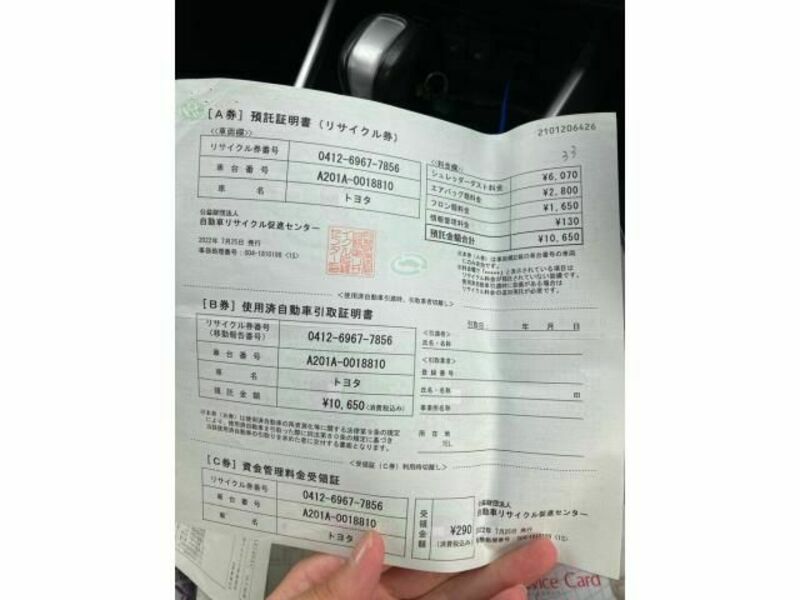 [A券] 預託証明書 (リサイクル券)
2101206426
33
≪車両欄≫
リサイクル券番号 0412-6967-7856
車台番号 A201A-0018810
車名 トヨタ
≪料金欄≫
シュレッダーダスト料金 ¥6,070
エアバッグ類料金 ¥2,800
フロン類料金 ¥1,650
情報管理料金 ¥130
預託金額合計 ¥10,650
公益財団法人
自動車リサイクル促進センター
2022年 7月25日 発行
<使用済自動車引渡時、引取業者切離し>
[B券] 使用済自動車引取証明書
リサイクル券番号
(移動報告番号) 0412-6967-7856
車台番号 A201A-0018810
車名 トヨタ
預託金額 ¥10,650(消費税込み)
引取日 年 月 日
<引渡者>
氏名・名称
<引取業者>
登録番号
氏名・名称 印
事業所名称
所在地
TEL
<受領証(C券)利用時切離し>
[C券] 資金管理料金受領証
リサイクル券番号 0412-6967-7856
車台番号 A201A-0018810
車名 トヨタ
受領金額 ¥290
(消費税込み)
自動車リサイクル促進センター
7月25日 発行
vice Card